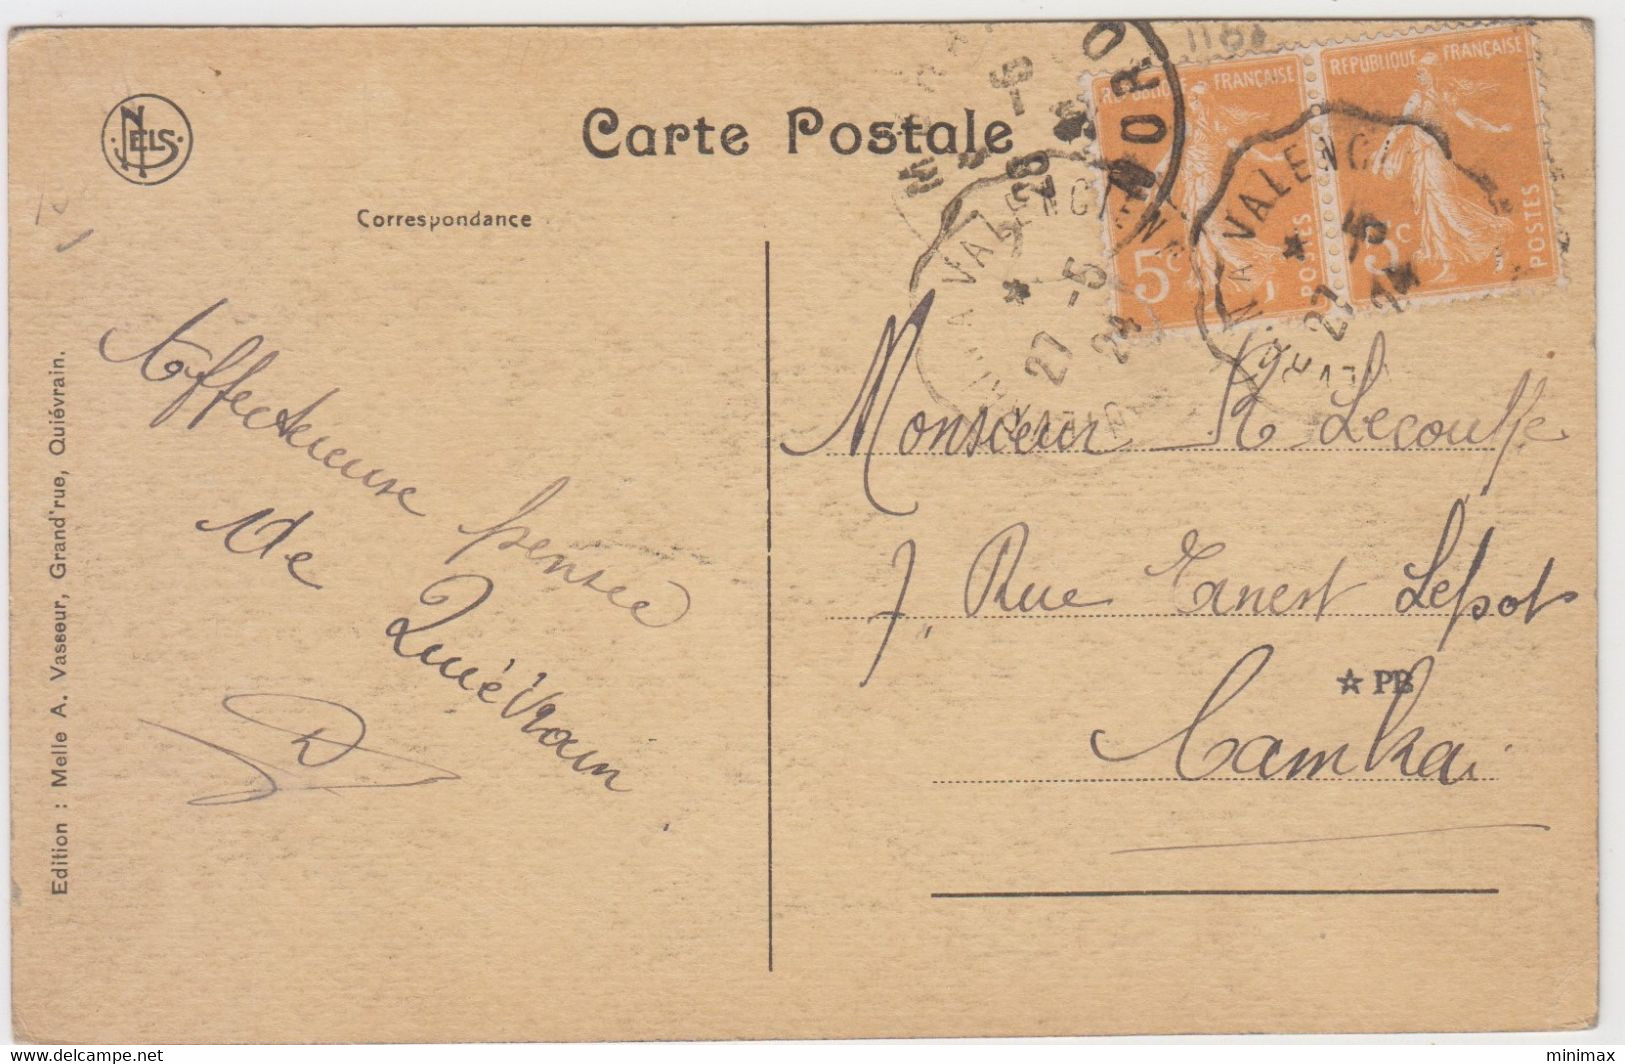 NELS
Carte Postale
Correspondance
Affectueuse pensée
de
Quiévrain
Monsieur R Lecouffe
7, Rue Ernest Lepot
Cambrai
★ PB
Edition : Melle A. Vasseur, Grand'rue, Quiévrain.
REPUBLIQUE FRANÇAISE
5c
POSTES
REPUBLIQUE FRANÇAISE
5c
POSTES
NORD
28 -5
A VALENCIENNES
27 -5
24
A VALENC
27 -5
24
minimax
www.delcampe.net